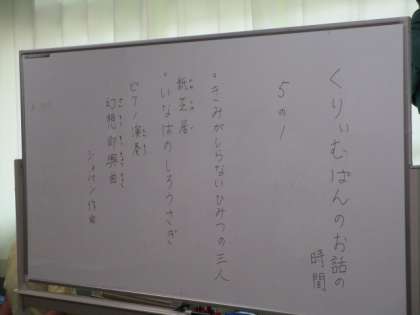 くりぃむぱんのお話の
時間
5の1
"きみがしらないひみつの三人
紙芝居
"いなばのしろうさぎ
ピアノ演奏
幻想即興曲
ショパン作曲